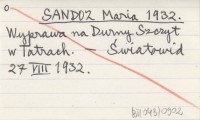 SANDOZ Maria 1932.
Wyprawa na Durny Szczyt
w Tatrach. — Światowid
27 VIII 1932.